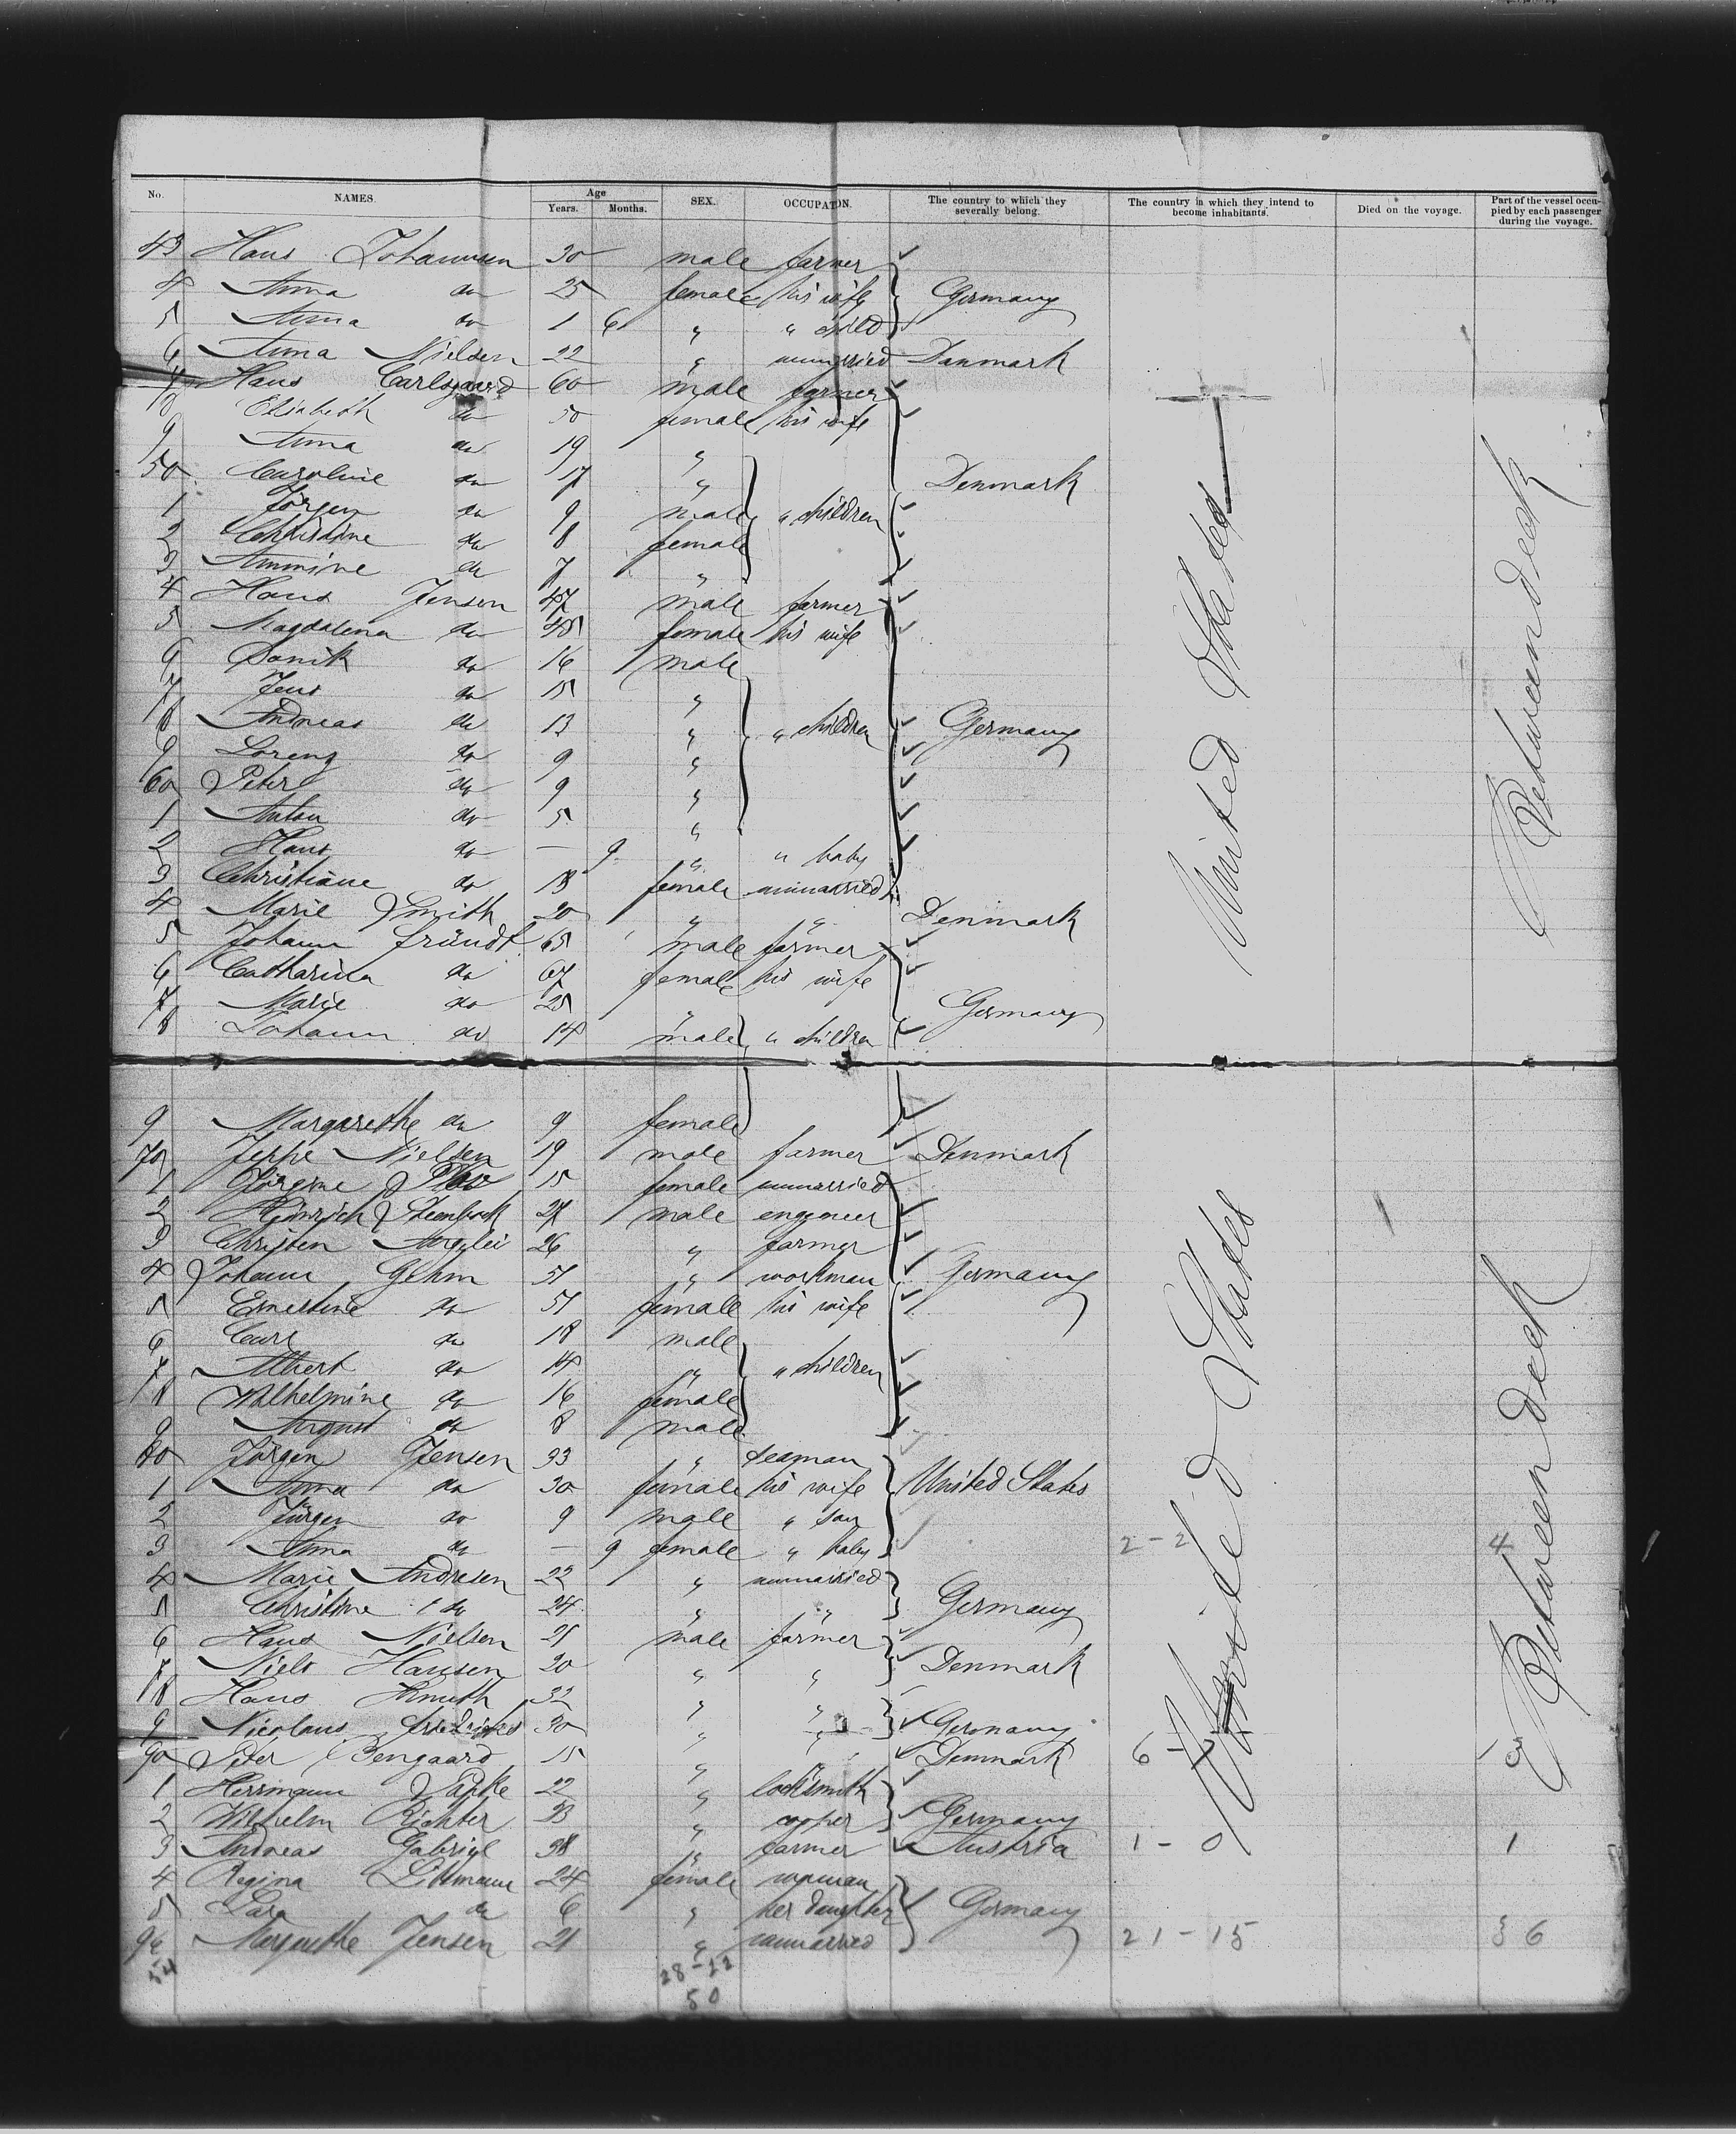 No. NAMES. Age Years. Months. SEX. OCCUPATION. The country to which they severally belong. The country in which they intend to become inhabitants. Died on the voyage. Part of the vessel occupied by each passenger during the voyage.
43 Hans Johannsen 30 male farmer
4 Anna do 25 female his wife Germany
5 Anna do 1 6 " " child
6 Anna Nielsen 22 " unmarried Danmark
7 Hans Carlsgaard 60 male farmer
8 Elisabeth do 50 female his wife
9 Anna do 19 "
50 Caroline do 17 " Denmark
1 Jörgen do 9 male " children
2 Christine do 8 female
3 Ammine do 7 "
4 Hans Jensen 47 male farmer
5 Magdalena do 45 female his wife
6 do 16 male
7 Jens do 15 "
8 Andreas do 13 " " children Germany
9 Lorenz do 9 "
60 Peter do 9 "
1 Anton do 5 "
2 Hans do — 9 " " baby
3 Christiane do 18 female unmarried
4 Marie Smith 20 " " Denmark
5 Johann Fründt 65 male farmer
6 Catharina do 67 female his wife
7 Marie do 25 " Germany
8 Johann do 14 male " children
United States
Between deck
9 Margarethe do 9 female
70 Jeppe Nielsen 19 male farmer Denmark
1 15 female unmarried
2 Hinrich Steenbock 27 male engeneer
3 Christen 26 " farmer
4 Johann Gehm 51 " workman Germany
5 Ernestine do 51 female his wife
6 Carl do 18 male
7 Albert do 14 " " children
8 Wilhelmine do 16 female
9 August do 8 male
80 Jörgen Jensen 33 " seaman
1 Anna do 30 female his wife United States
2 Jürgen do 9 male " son
3 Anna do — 9 female " baby 2-2 4
4 Marie Andresen 22 " unmarried
5 Christine do 24 " " Germany
6 Hans Nielsen 21 male farmer
7 Niels Hansen 20 " " Denmark
8 Hans 32 " "
9 Nicolaus Friedrichs 30 " " Germany
90 Peter Bengaard 15 " " Denmark 6-
1 Herrmann Papke 22 " locksmith
2 Wilhelm Richter 23 " cooper Germany
3 Andreas Gabriel 38 " farmer Austria 1-0 1
4 Regina Littmann 24 female woman
5 Lara do 6 " her daughter Germany
96 Margarethe Jensen 21 " unmarried 21-15 36
54 28-22
50
United States
Between deck